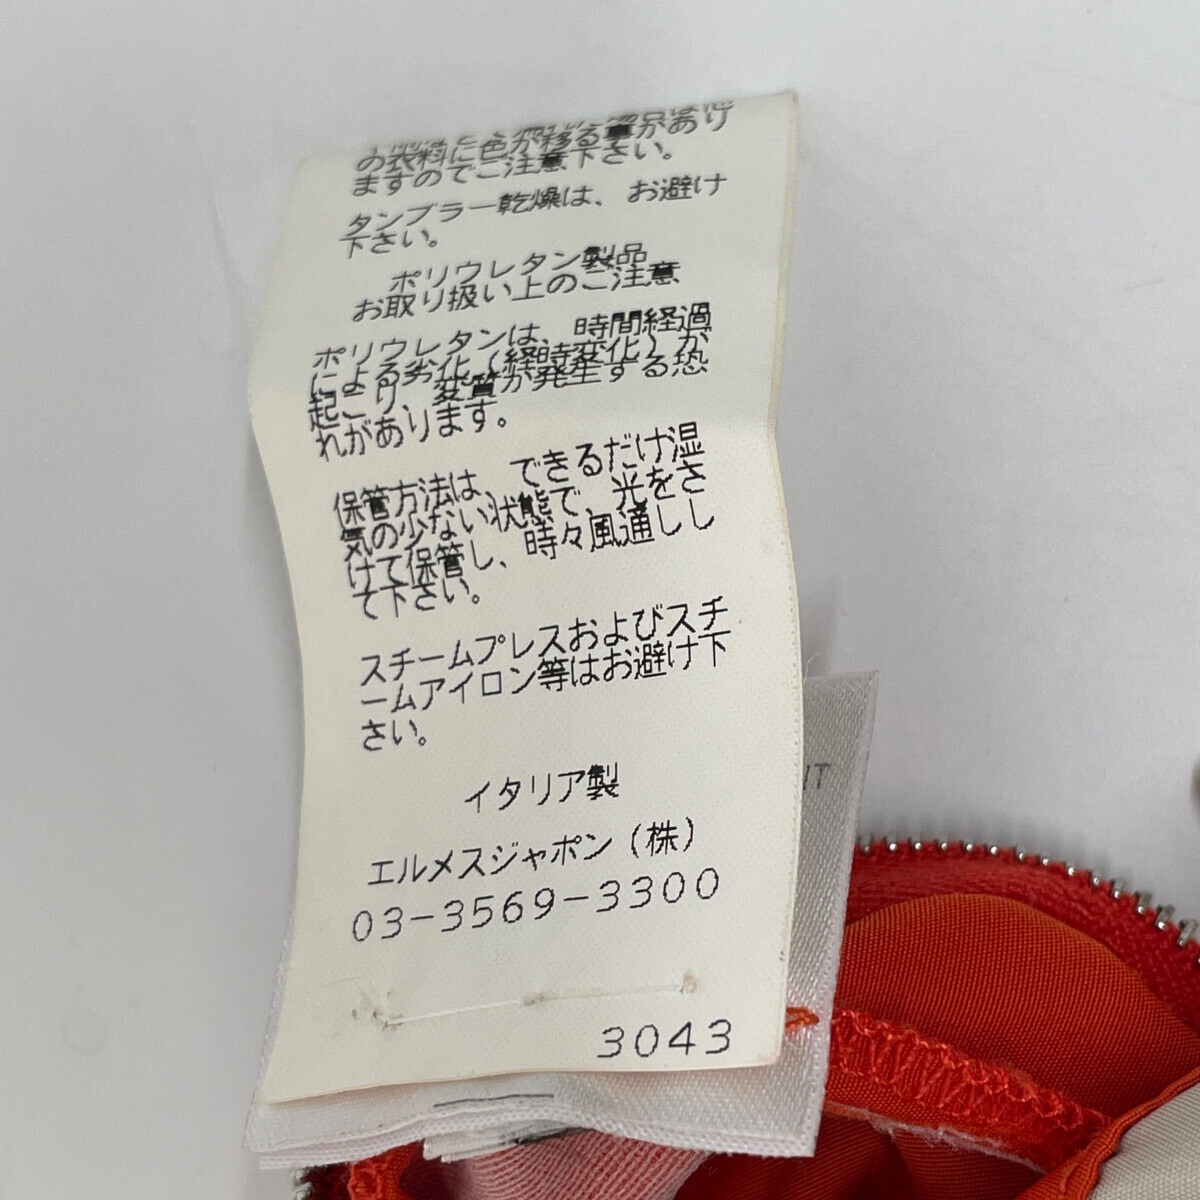 の衣料に色が移る事があり
ますのでご注意下さい。
タンブラー乾燥は、お避け
下さい。
ポリウレタン製品
お取り扱い上のご注意
ポリウレタンは、時間経過
による劣化(経時変化)が
起こり、変質が発生する恐
れがあります。
保管方法は、できるだけ湿
気の少ない状態で、光をさ
けて保管し、時々風通しし
て下さい。
スチームプレスおよびスチ
ームアイロン等はお避け下
さい。
イタリア製
エルメスジャポン(株)
03-3569-3300
3043